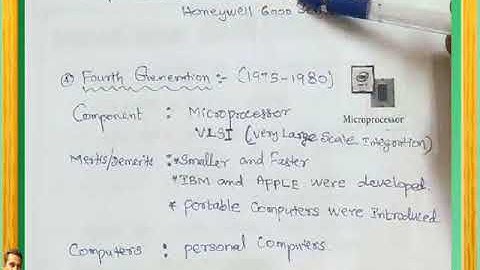 Honeywell 6000 Se
④ Fourth Generation :- (1975-1980)
Component : Microprocessor
VLSI (very Large Scale Integration)
Microprocessor
Merits/Demerits : * Smaller and Faster
* IBM and APPLE were developed.
* Portable computers were Introduced
Computers : personal computers